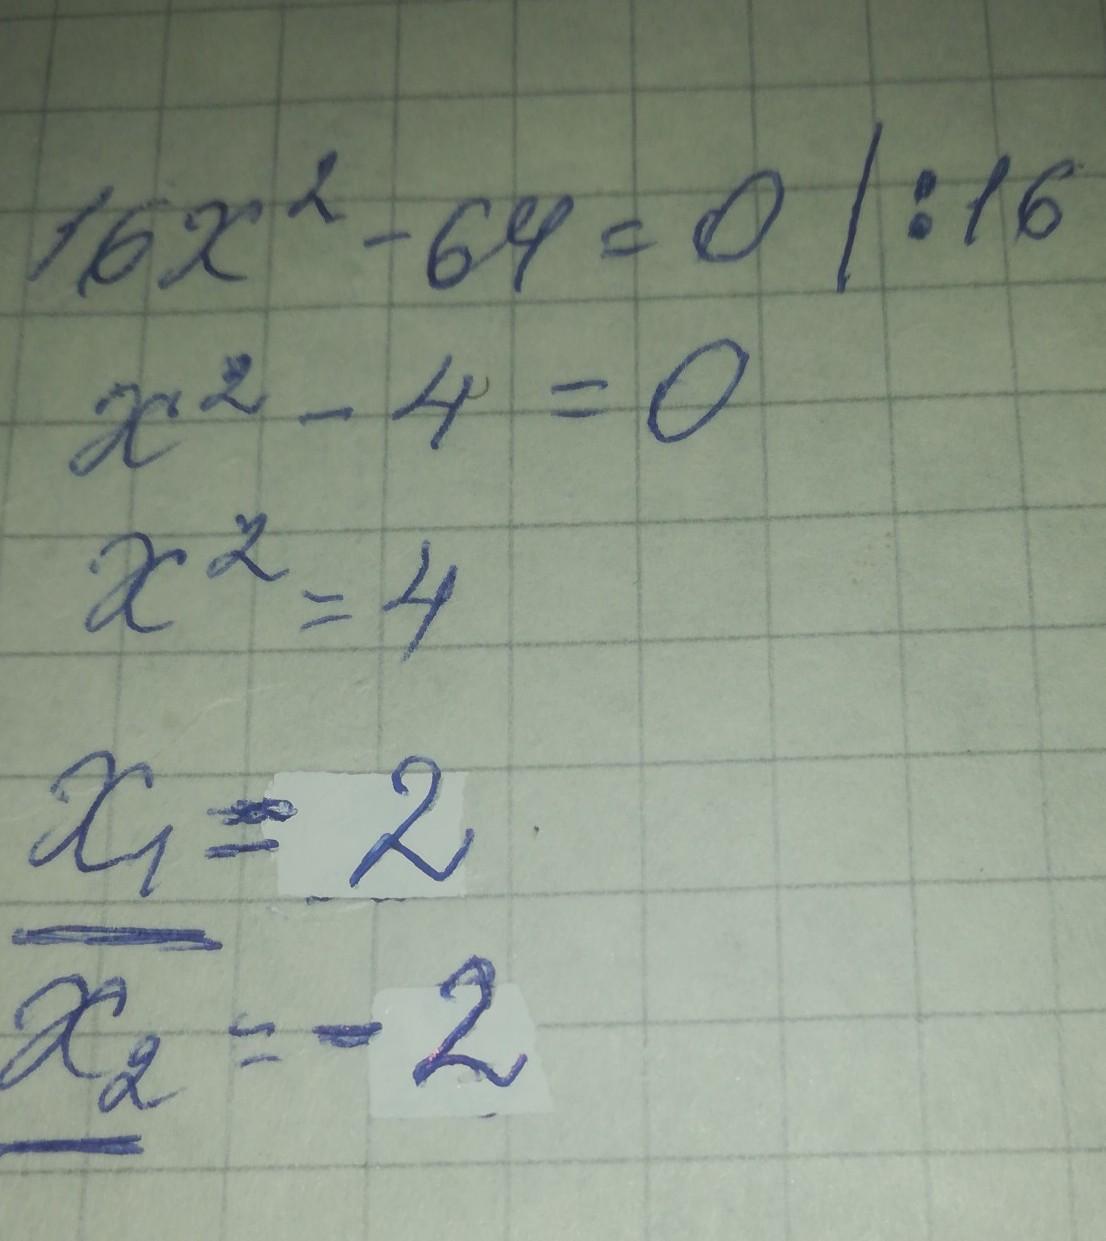 16x² - 64 = 0 | :16
x² - 4 = 0
x² = 4
x₁ = 2
x₂ = - 2